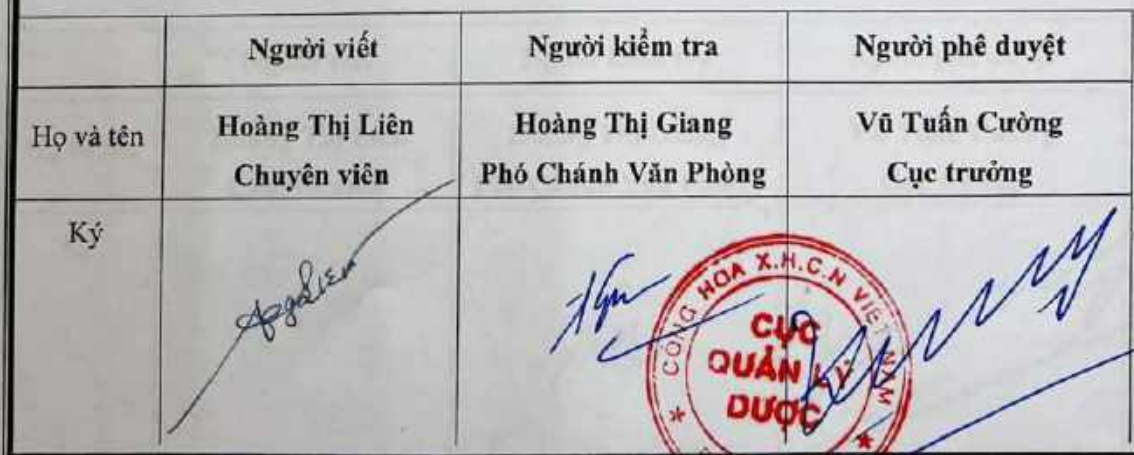 Người viết
Người kiểm tra
Người phê duyệt
Họ và tên
Hoàng Thị Liên
Chuyên viên
Hoàng Thị Giang
Phó Chánh Văn Phòng
Vũ Tuấn Cường
Cục trưởng
Ký
CỘNG HÒA X.H.C.N VIỆT NAM
CỤC
QUẢN LÝ
DƯỢC